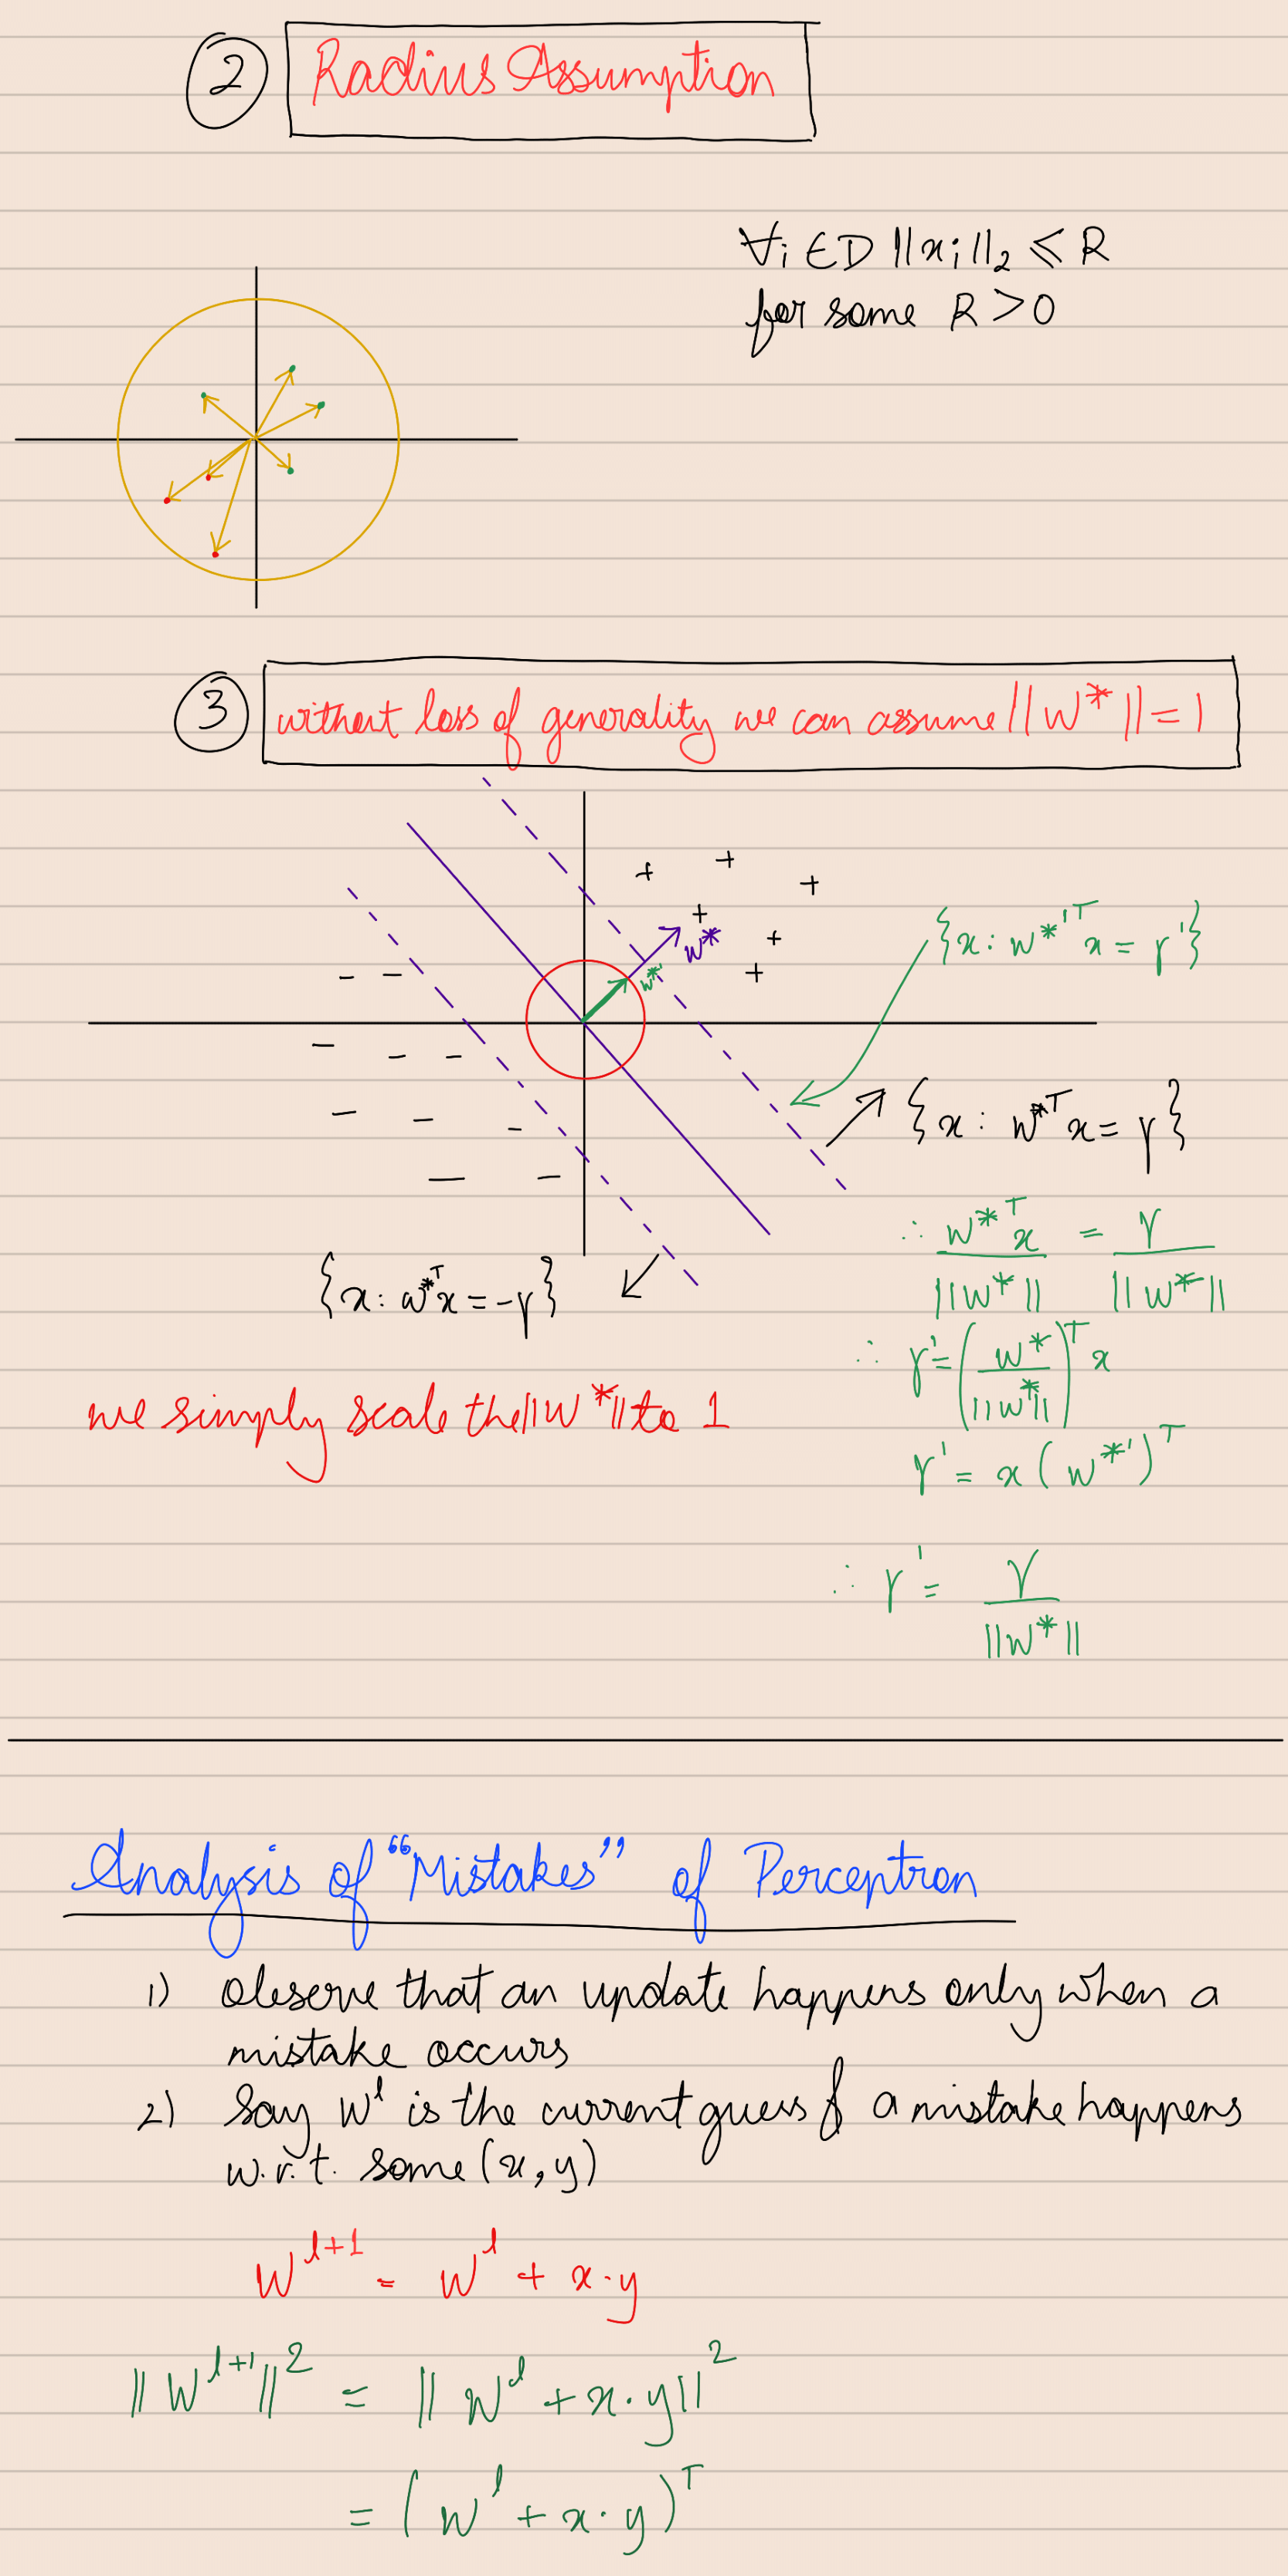 ② Radius Assumption
∀i ∈ D ||xi||₂ ≤ R
for some R > 0
③ without loss of generality we can assume ||W*|| = 1
{x: w*'ᵀ x = γ'}
w*
w*'
{x: w*ᵀx = γ}
{x: w*ᵀx = -γ}
∴ w*ᵀx / ||w*|| = γ / ||w*||
∴ γ' = (w* / ||w*||)ᵀ x
we simply scale the ||W*|| to 1
γ' = x (w*')ᵀ
∴ γ' = γ / ||W*||
Analysis of "Mistakes" of Perceptron
1) observe that an update happens only when a
mistake occurs
2) Say Wˡ is the current guess & a mistake happens
w.r.t. some (x, y)
Wˡ⁺¹ = Wˡ + x·y
||Wˡ⁺¹||² = ||Wˡ + x·y||²
= (Wˡ + x·y)ᵀ